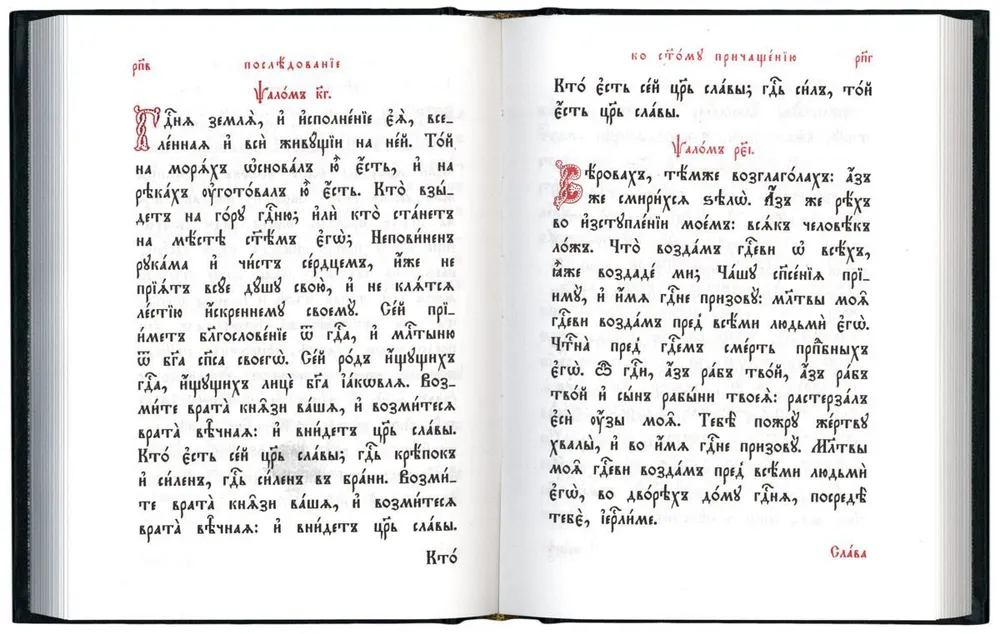 рп҃в
послѣ́дованїе
Ѱало́мъ к҃г.
Гдⷭ҇нѧ землѧ̀, и҆ и҆сполне́нїе є҆ѧ̀, все-
ле́ннаѧ и҆ всѝ живꙋ́щїи на не́й. То́й
на морѧ́хъ ѡ҆снова́лъ ю҆̀ є҆́сть, и҆ на
рѣка́хъ ᲂу҆гото́валъ ю҆̀ є҆́сть. Кто̀ взы́-
детъ на го́рꙋ гдⷭ҇ню; и҆лѝ кто̀ ста́нетъ
на мѣ́стѣ ст҃ѣ́мъ є҆гѡ̀; Непови́ненъ
рꙋка́ма и҆ чи́стъ се́рдцемъ, и҆́же не
прїѧ́тъ всꙋ́е дꙋ́шꙋ свою̀, и҆ не клѧ́тсѧ
ле́стїю и҆́скреннемꙋ своемꙋ̀. Се́й прї-
и́метъ блгⷭ҇ове́нїе ѿ гдⷭ҇а, и҆ млⷭ҇тыню
ѿ бг҃а сп҃са своегѡ̀. Се́й ро́дъ и҆́щꙋщихъ
гдⷭ҇а, и҆́щꙋщихъ лицѐ бг҃а і҆а́кѡвлѧ. Воз-
ми́те врата̀ кнѧ̑зи ва́шѧ, и҆ возми́тесѧ
врата̀ вѣ̑чнаѧ: и҆ вни́детъ цр҃ь сла́вы.
Кто̀ є҆́сть се́й цр҃ь сла́вы; гдⷭ҇ь крѣ́покъ
и҆ си́ленъ, гдⷭ҇ь си́ленъ в бра́ни. Возми́-
те врата̀ кнѧ̑зи ва́шѧ, и҆ возми́тесѧ
врата̀ вѣ̑чнаѧ: и҆ вни́детъ цр҃ь сла́вы.
Кто̀
ко ст҃о́мꙋ причаще́нїю
рп҃г
Кто̀ є҆́сть се́й цр҃ь сла́вы; гдⷭ҇ь си́лъ, то́й
є҆́сть цр҃ь сла́вы.
Ѱало́мъ ре҃і.
Вѣ́ровахъ, тѣ́мже возглаго́лахъ: а҆́зъ
же смири́хсѧ ѕѣлѡ̀. А҆́зъ же рѣ́хъ
во и҆зстꙋпле́нїи мое́мъ: всѧ́къ человѣ́къ
ло́жъ. Что̀ возда́мъ гдⷭ҇еви ѡ҆ всѣ́хъ,
ꙗ҆̀же воздаде́ ми; Ча́шꙋ сп҃се́нїѧ прї-
имꙋ̀, и҆ и҆́мѧ гдⷭ҇не призовꙋ̀: мл҃твы моѧ̑
гдⷭ҇еви возда́мъ пред̾ всѣ́ми людьмѝ є҆гѡ̀.
Чтⷭ҇на̀ пред̾ гдⷭ҇емъ сме́рть прпⷣбныхъ
є҆гѡ̀. Ѽ гдⷭ҇и, а҆́зъ ра́бъ тво́й, а҆́зъ ра́бъ
тво́й и҆ сы́нъ рабы́ни твоеѧ̀: растерза́лъ
є҆сѝ ᲂу҆́зы моѧ̑. Тебѣ̀ пожрꙋ̀ же́ртвꙋ
хвалы̀, и҆ во и҆́мѧ гдⷭ҇не призовꙋ̀. Мл҃твы
моѧ̑ гдⷭ҇еви возда́мъ пред̾ всѣ́ми людьмѝ
є҆гѡ̀, во дво́рѣхъ до́мꙋ гдⷭ҇нѧ, посредѣ̀
тебє̀, і҆ерⷭ҇ли́ме.
Сла́ва